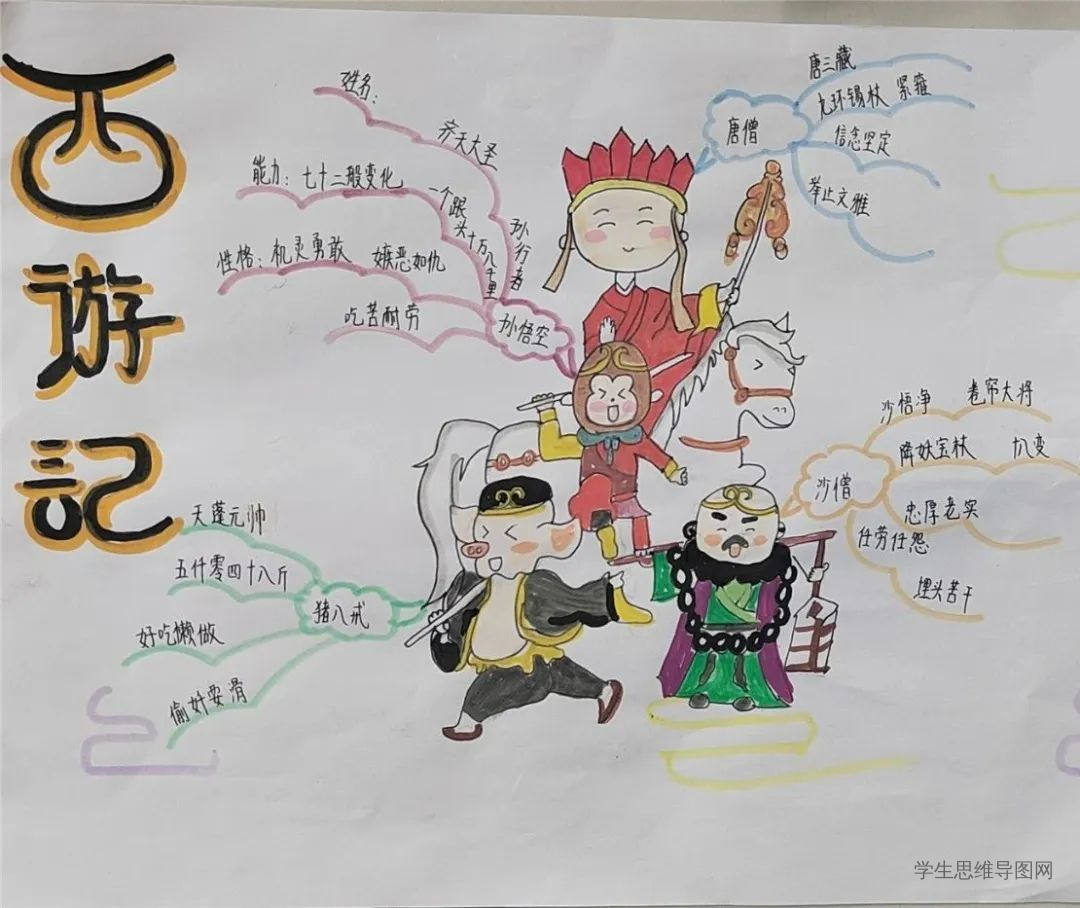 西遊記
姓名:
齐天大圣
孙行者
能力:七十二般变化
一个跟头十万八千里
性格:机灵勇敢 嫉恶如仇
吃苦耐劳
孙悟空
唐三藏
九环锡杖 紧箍
信念坚定
举止文雅
唐僧
沙悟净 卷帘大将
降妖宝杖 扒变
忠厚老实
任劳任怨
埋头苦干
沙僧
天蓬元帅
五仟零四十八斤
好吃懒做
偷奸耍滑
猪八戒
学生思维导图网